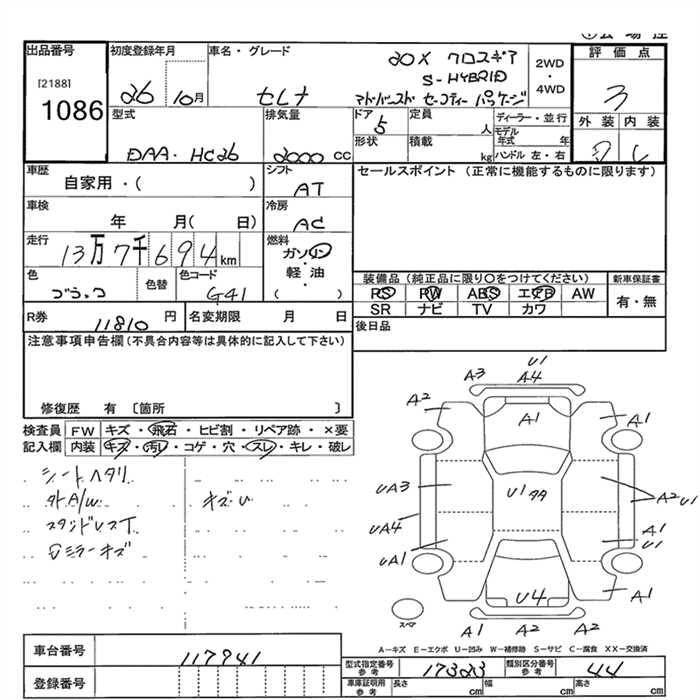 出品番号
[2188]
1086
初度登録年月
26 10月
車名・グレード
セレナ
20X クロスギア
S-HYBRID
アドバンスド セーフティー パッケージ
2WD
・
4WD
評価点
3
外装 内装
D C
型式
DAA-HC26
排気量
2000 cc
ドア
5
形状
定員
人
積載
kg
ディーラー・並行
モデル
年式 年
ハンドル 左・右
車歴
自家用・( )
シフト
AT
セールスポイント(正常に機能するものに限ります)
車検
年 月( 日)
冷房
AC
走行
13万7千694km
燃料
ガソリン
・
軽油
( )
色
ブラック
色替
色コード
G41
装備品(純正品に限り○をつけてください)
PS PW ABS エアB AW
SR ナビ TV カワ
新車保証書
有・無
R券
11810円
名変期限 月 日
後日品
注意事項申告欄(不具合内容等は具体的に記入して下さい)
修復歴 有〔箇所 〕
検査員 FW キズ・飛石・ヒビ割・リペア跡・×要
記入欄 内装 キズ・汚レ・コゲ・穴・スレ・キレ・破レ
シートヘタリ
外A/W キズU
スタッドレスT
Dミラーキズ
A3 A4 U1
A2
A1
A1
UA3
U1
A2 U1
UA4
A1
UA1
U1
U4
A1
A1 A2 A2
スペア
A-キズ E-エクボ U-凹み W-補修跡 S-サビ C-腐食 XX-交換済
車台番号
117941
登録番号
型式指定番号
参考
17323
類別区分番号
参考
44
車庫証明用
参考
長さ cm 幅 cm 高さ cm